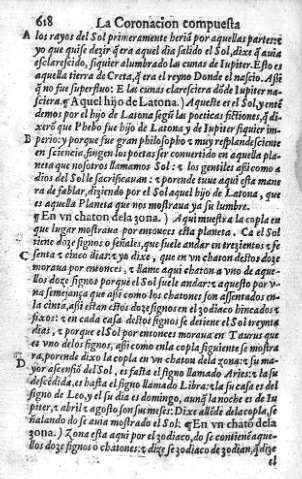 618 La Coronacion compuesta
A los rayos del Sol primeramente heriā por aquellas partes: ⁊
yo que quise dezir q̄ era aquel dia salido el Sol, dixe q̄ auia
esclarescido, siquier alumbrado las cunas de Iupiter. Esto es
aquella tierra de Creta, q̄ era el reyno Donde el nascio. Assi
q̄ no fue superfluo: E las cunas claresciera dōde Iupiter na-
sciera. ¶ Aquel hijo de Latona.) Aqueste es el Sol, y entē
demos por el hijo de Latona segū las poeticas fictiones, q̄ di-
xerō que Phebo fue hijo de Latona y de Iupiter siquier im-
B perio: y porque fue gran philosopho ⁊ muy resplandesciente
en sciencia, fingen los poetas ser conuertido en aquella pla-
neta que nosotros llamamos Sol: ⁊ los gentiles assi como a
dios del Sol le sacrificauan: ⁊ porende tuue aqui esta mane
ra de fablar, diziendo por el Sol aquel hijo de Latona, que
es aquella Planeta que nos mostraua ya su lumbre.
¶ En vn chaton dela zona.) Aqui muestra la copla en
que lugar mostraua por entonces esta planeta. Ca el Sol
tiene doze signos o señales, que suele andar en trezientos ⁊ se
C senta ⁊ cinco dias: ⁊ yo dixe, que en vn chaton destos doze
moraua por entonces, ⁊ llame aqui chaton a vno de aque-
llos doze signos porque el Sol suele andar: ⁊ aquesto por v-
na semejança que assi como los chatones son assentados en-
la cinta, assi estan estos doze signos en el zodiaco hincados ⁊
fixos: ⁊ en cada casa destos signos se detiene el Sol treynta
dias, ⁊ porque el Sol por entonces moraua en Taurus que
es vno delos signos, assi como en la copla siguiente se mostra
D ra, porende dixo la copla en vn chaton dela zona: ⁊ su ma-
yor ascensiō del Sol, es fasta el signo llamado Aries: ⁊ la su
descēdida, es hasta el signo llamado Libra: ⁊ la su casa es del
signo de Leo, y el su dia es domingo, aunq̄ la noche es de Iu
piter, ⁊ abril ⁊ agosto son sus meses: Dixe allēde dela copla, se
ñalando do se auia mostrado el Sol: ¶ En vn chatō dela
zona.) Zona esta aqui por el zodiaco, do se contienē aque-
llos doze signos o chatones: ⁊ dize se zodiaco de zodian, q̄ dize
el